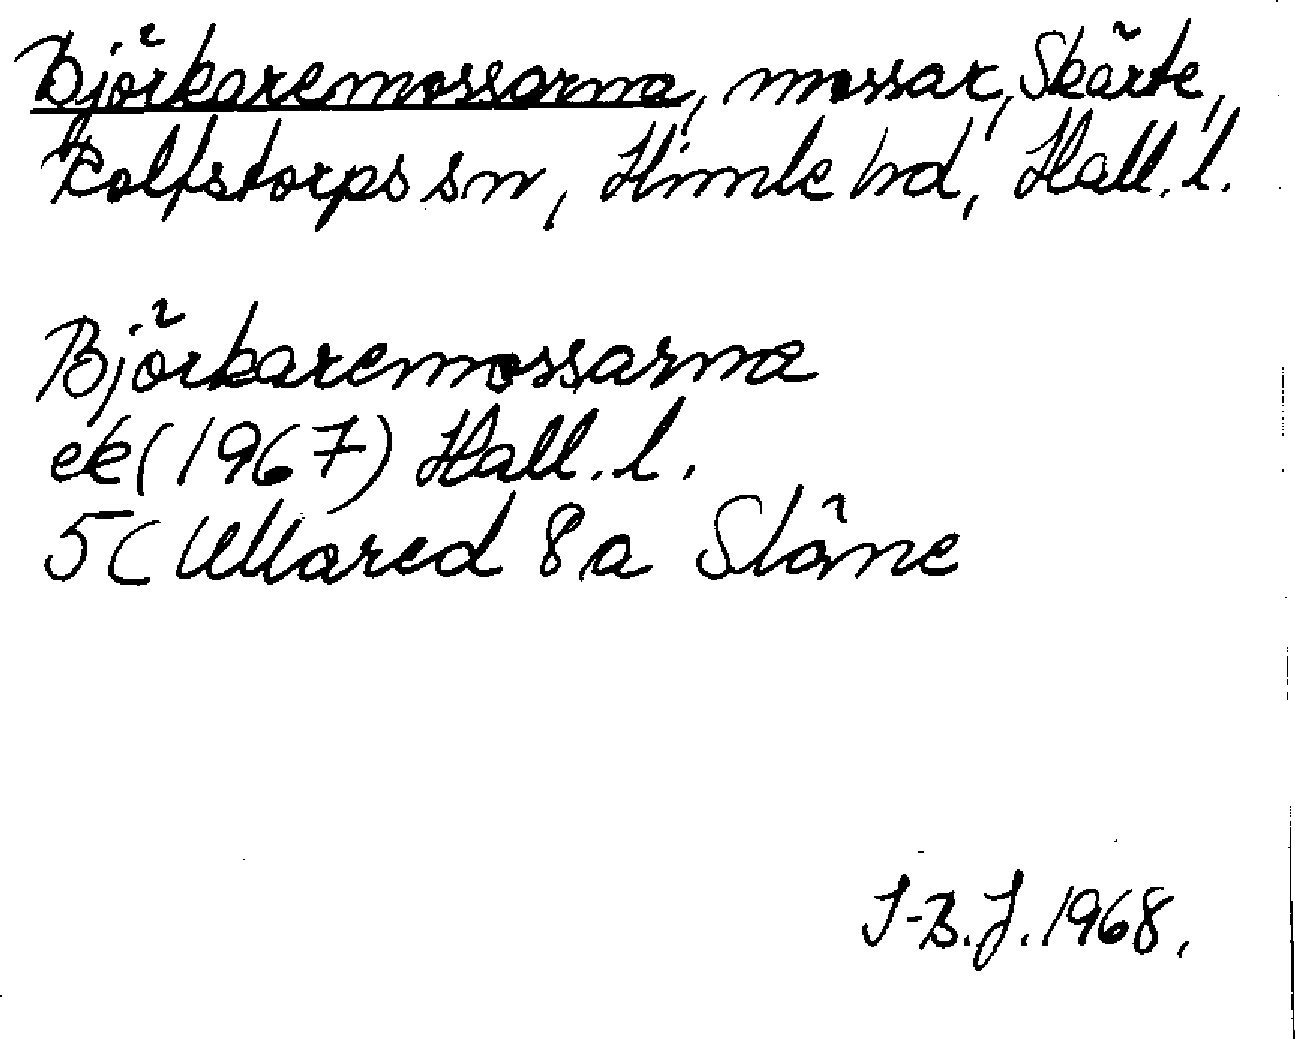 Björkaremossarna, mossar, Skärte,
Rolfstorps sn, Himle hd, Hall. l.
Björkaremossarna
ek (1967) Hall. l.
5C Ullared 8 a Slåne
J-B. J. 1968.